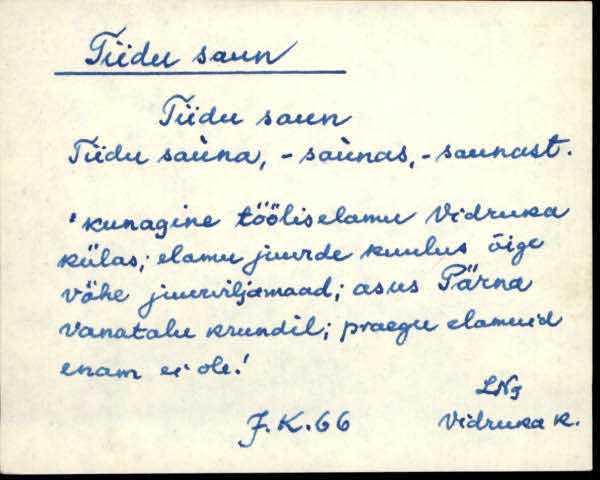 Tiidu saun
Tiidu saun
Tiidu sauna, - saunas, - saunast.
'kunagine tööliselamu Vidruka
külas; elamu juurde kuulus õige
vähe juurviljamaad; asus Pärna
vanatalu krundil; praegu elamuid
enam ei ole.'
LNg
J.K.66 Vidruka k.